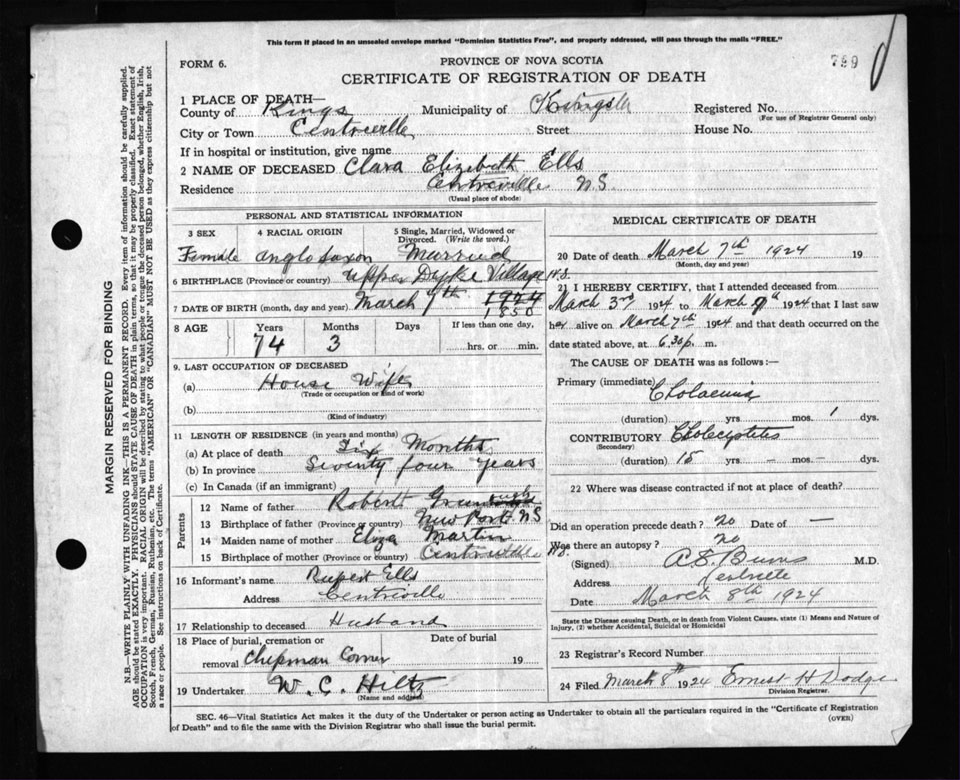 This form if placed in an unsealed envelope marked "Dominion Statistics Free", and properly addressed, will pass through the mails "FREE."
FORM 6.
PROVINCE OF NOVA SCOTIA
799
CERTIFICATE OF REGISTRATION OF DEATH
1 PLACE OF DEATH—
County of Kings Municipality of Kings Registered No.
(For use of Registrar General only)
City or Town Centreville Street House No.
If in hospital or institution, give name
2 NAME OF DECEASED Clara Elizabeth Ells
Residence Centreville N.S.
(Usual place of abode)
PERSONAL AND STATISTICAL INFORMATION
3 SEX 4 RACIAL ORIGIN 5 Single, Married, Widowed or Divorced. (Write the word.)
Female Anglo Saxon Married
6 BIRTHPLACE (Province or country) Upper Dyke Village N.S.
7 DATE OF BIRTH (month, day and year) March 7th 1924
1850
8 AGE Years Months Days If less than one day,
74 3 hrs. or min.
9. LAST OCCUPATION OF DECEASED
(a) House Wife
(Trade or occupation or kind of work)
(b)
(Kind of industry)
11 LENGTH OF RESIDENCE (in years and months)
(a) At place of death Six Months
(b) In province Seventy four years
(c) In Canada (if an immigrant)
Parents
12 Name of father Robert
13 Birthplace of father (Province or country) New Port N S
14 Maiden name of mother Eliza Martin
15 Birthplace of mother (Province or country) Centreville N.S.
16 Informant's name Rupert Ells
Address Centreville
17 Relationship to deceased Husband
18 Place of burial, cremation or removal Chipman Corner Date of burial 19
19 Undertaker W. C. Hiltz
(Name and address)
MEDICAL CERTIFICATE OF DEATH
20 Date of death March 7th 1924 19
(Month, day and year)
21 I HEREBY CERTIFY, that I attended deceased from
March 3rd 1924 to March 1924 that I last saw
her alive on March 7th 1924 and that death occurred on the
date stated above, at 6.30 p. m.
The CAUSE OF DEATH was as follows:—
Primary (immediate) Cholaemia
(duration) yrs. mos. 1 dys.
CONTRIBUTORY Cholecystitis
(Secondary)
(duration) 15 yrs. – mos. – dys.
22 Where was disease contracted if not at place of death?
Did an operation precede death? no Date of —
Was there an autopsy? no
(Signed) A.S. Burns M.D.
Address Kentville
Date March 8th 1924
State the Disease causing Death, or in death from Violent Causes, state (1) Means and Nature of Injury, (2) whether Accidental, Suicidal or Homicidal
23 Registrar's Record Number
24 Filed March 8th 1924 Ernest H Dodge
Division Registrar
SEC. 46—Vital Statistics Act makes it the duty of the Undertaker or person acting as Undertaker to obtain all the particulars required in the "Certificate of Registration
of Death" and to file the same with the Division Registrar who shall issue the burial permit.
(OVER)
MARGIN RESERVED FOR BINDING
N.B.—WRITE PLAINLY WITH UNFADING INK—THIS IS A PERMANENT RECORD. Every item of information should be carefully supplied.
AGE should be stated EXACTLY. PHYSICIANS should STATE CAUSE OF DEATH in plain terms, so that it may be properly classified. Exact statement of
OCCUPATION is very important. RACIAL ORIGIN will be described by stating to what people or tongue the deceased person belonged, whether English, Irish,
Scotch, French, German, Russian, Ruthenian, etc. The terms "AMERICAN" or "CANADIAN" MUST NOT BE USED as they express citizenship but not
a race or people. See instructions on back of Certificate.